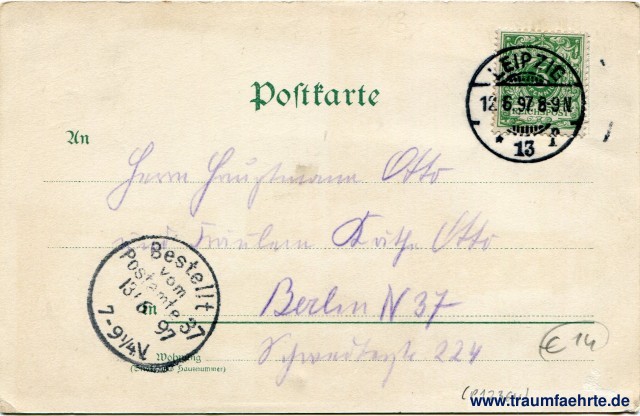 Postkarte
REICHSPOST
LEIPZIG
12.6.97.8-9N.
* 13
An
Herrn Hauptmann Otto
und Fräulein Käthe Otto
Bestellt
vom
Postamte 37
13/6 97
7-9¼V
in
Berlin N 37
Wohnung
(Straße und Hausnummer)
224
€ 14
www.traumfaehrte.de